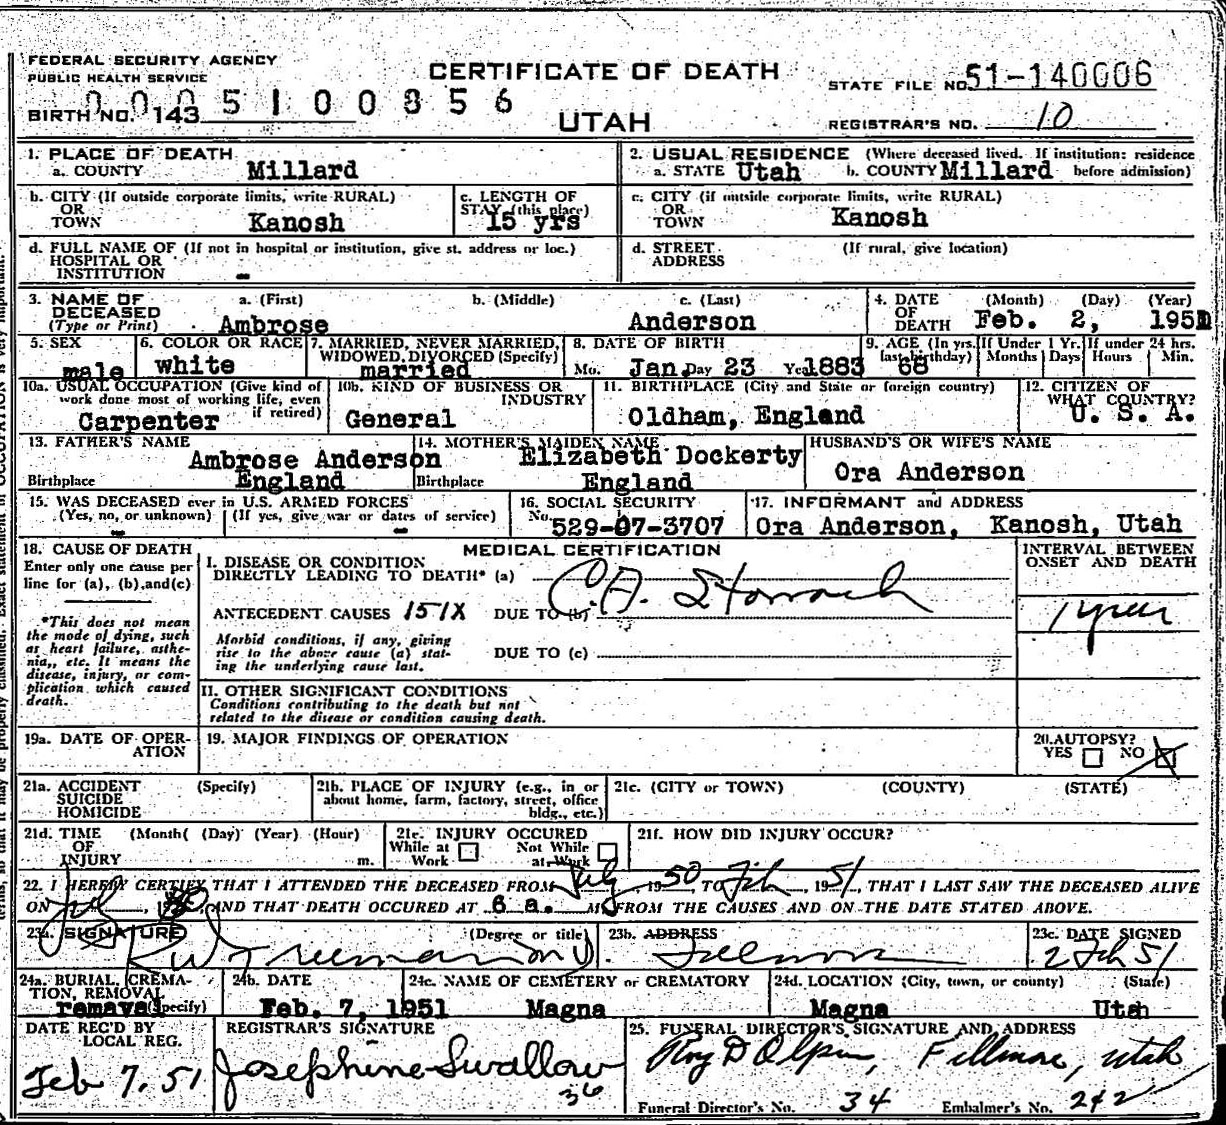 FEDERAL SECURITY AGENCY
PUBLIC HEALTH SERVICE
CERTIFICATE OF DEATH
STATE FILE NO. 51-140006
0005100856
BIRTH NO. 143
UTAH
REGISTRAR'S NO. 10
1. PLACE OF DEATH
a. COUNTY Millard
2. USUAL RESIDENCE (Where deceased lived. If institution: residence
a. STATE Utah b. COUNTY Millard before admission)
b. CITY (If outside corporate limits, write RURAL)
OR
TOWN Kanosh
c. LENGTH OF
STAY (this place)
15 yrs
c. CITY (if outside corporate limits, write RURAL)
OR
TOWN Kanosh
d. FULL NAME OF (If not in hospital or institution, give st. address or loc.)
HOSPITAL OR
INSTITUTION -
d. STREET (If rural, give location)
ADDRESS
3. NAME OF DECEASED
(Type or Print)
a. (First) b. (Middle) c. (Last)
Ambrose Anderson
4. DATE OF DEATH
(Month) (Day) (Year)
Feb. 2, 1951
5. SEX
male
6. COLOR OR RACE
white
7. MARRIED, NEVER MARRIED,
WIDOWED, DIVORCED (Specify)
married
8. DATE OF BIRTH
Mo. Jan. Day 23 Ye. 1883
9. AGE (In yrs. last birthday)
68
If Under 1 Yr.
Months Days
If under 24 hrs.
Hours Min.
10a. USUAL OCCUPATION (Give kind of
work done most of working life, even
if retired)
Carpenter
10b. KIND OF BUSINESS OR
INDUSTRY
General
11. BIRTHPLACE (City and State or foreign country)
Oldham, England
12. CITIZEN OF
WHAT COUNTRY?
U. S. A.
13. FATHER'S NAME
Ambrose Anderson
Birthplace England
14. MOTHER'S MAIDEN NAME
Elizabeth Dockerty
Birthplace England
HUSBAND'S OR WIFE'S NAME
Ora Anderson
15. WAS DECEASED ever in U.S. ARMED FORCES
(Yes, no, or unknown) (If yes, give war or dates of service)
- -
16. SOCIAL SECURITY
No. 529-07-3707
17. INFORMANT and ADDRESS
Ora Anderson, Kanosh, Utah
18. CAUSE OF DEATH
Enter only one cause per
line for (a), (b), and (c)
*This does not mean
the mode of dying, such
as heart failure, asthe-
nia,, etc. It means the
disease, injury, or com-
plication which caused
death.
MEDICAL CERTIFICATION
I. DISEASE OR CONDITION
DIRECTLY LEADING TO DEATH* (a)
C.A. Stomach
ANTECEDENT CAUSES 151X DUE TO (b)
Morbid conditions, if any, giving
rise to the above cause (a) stat-
ing the underlying cause last.
DUE TO (c)
II. OTHER SIGNIFICANT CONDITIONS
Conditions contributing to the death but not
related to the disease or condition causing death.
INTERVAL BETWEEN
ONSET AND DEATH
1 year
19a. DATE OF OPER-
ATION
19. MAJOR FINDINGS OF OPERATION
20. AUTOPSY?
YES NO X
21a. ACCIDENT (Specify)
SUICIDE
HOMICIDE
21b. PLACE OF INJURY (e.g., in or
about home, farm, factory, street, office
bldg., etc.)
21c. (CITY or TOWN) (COUNTY) (STATE)
21d. TIME (Month( (Day) (Year) (Hour)
OF
INJURY m.
21e. INJURY OCCURED
While at Not While
Work at Work
21f. HOW DID INJURY OCCUR?
22. I HEREBY CERTIFY THAT I ATTENDED THE DECEASED FROM July 1950, TO Feb, 1951, THAT I LAST SAW THE DECEASED ALIVE
ON , 19 , AND THAT DEATH OCCURED AT 6 a. M., FROM THE CAUSES AND ON THE DATE STATED ABOVE.
23a. SIGNATURE (Degree or title)
23b. ADDRESS
23c. DATE SIGNED
Freeman M D. Fillmore 2 Feb 51
24a. BURIAL, CREMA-
TION, REMOVAL
(Specify)
24b. DATE
Feb. 7, 1951
24c. NAME OF CEMETERY or CREMATORY
Magna
24d. LOCATION (City, town, or county) (State)
Magna Utah
DATE REC'D BY
LOCAL REG.
Feb 7. 51
REGISTRAR'S SIGNATURE
Josephine Swallow
36
25. FUNERAL DIRECTOR'S SIGNATURE AND ADDRESS
Roy D Olpin, Fillmore, utah
Funeral Director's No. 34 Embalmer's No. 242